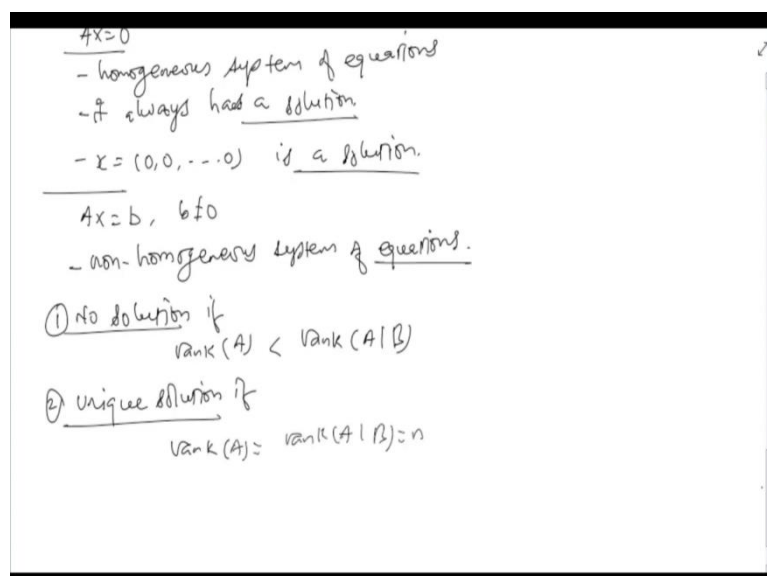 AX=0
- homogeneous system of equations
- It always has a solution
- x = (0,0, ---0) is a solution.
AX=b, b≠0
- non-homogeneous system of equations.
① No solution if
rank(A) < rank(A|B)
② unique solution if
rank(A) = rank(A|B)=n